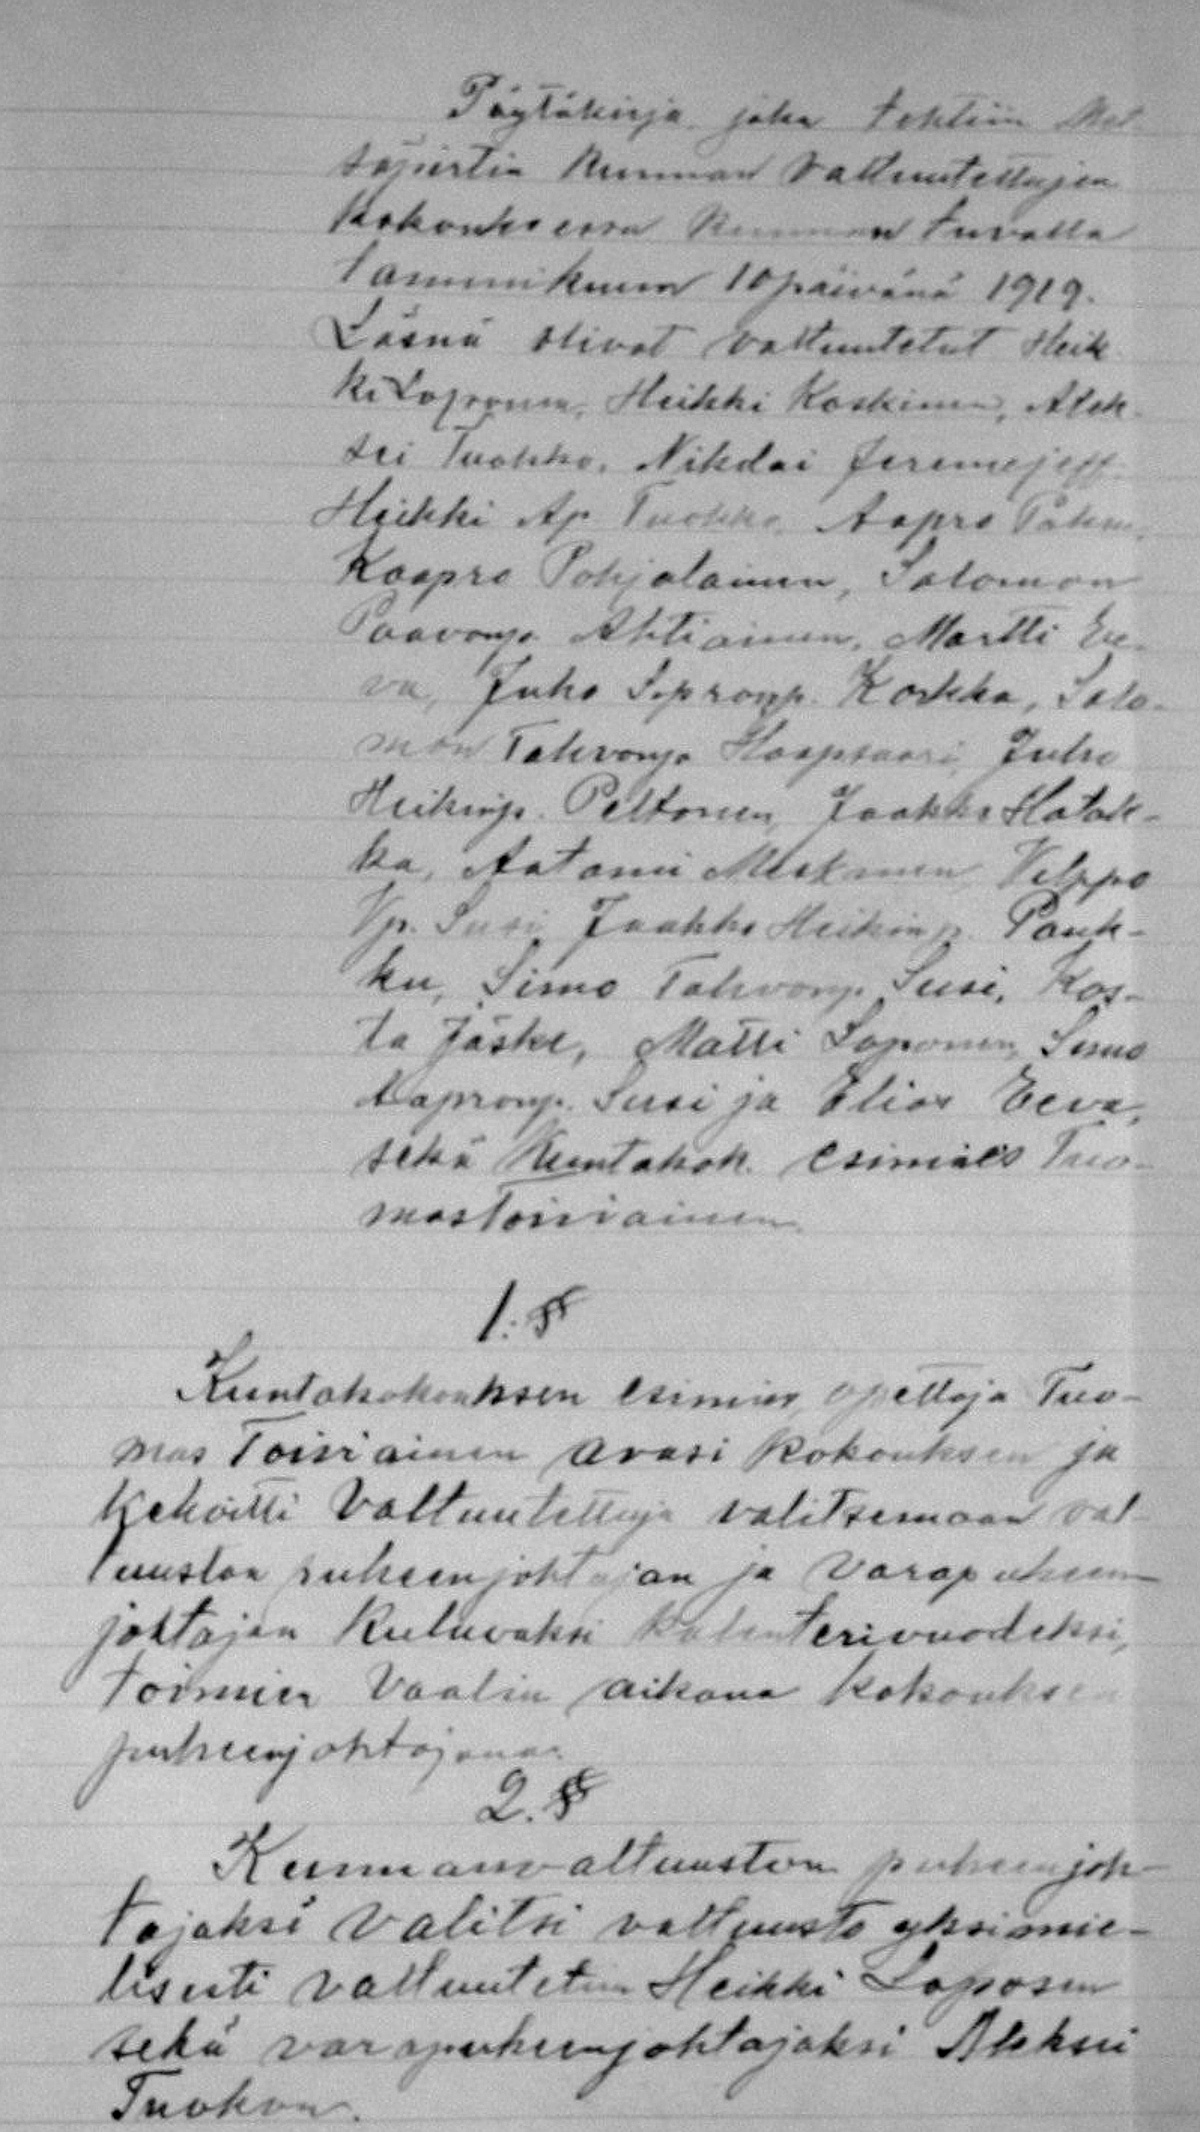 Pöytäkirja joka tehtiin Met-
säpirtin Kunnan Valtuutettujen
kokouksessa Kunnan tuvalla
tammikuun 10 päivänä 1919.
Läsnä olivat valtuutetut Heik
ki Loponen, Heikki Koskinen, Alek-
sei Tuokko, Nikolai Jeremejeff
Heikki Ap. Tuokko, Aapro
Kaapro Pohjalainen, Salomon
Paavonp. Ahtiainen, Martti Ee-
va, Juho Sepronp. Korkka, Salo-
mon Tahvonp. Haapsaari, Juho
Heikinp. Peltonen, Jaakko Hatak-
ka, Aatami Miskanen, Vilppo
Vp. Susi, Jaakko Heikinp. Pauk-
ku, Simo Tahvonp. Susi, Kos-
ta Jäske, Matti Loponen, Simo
Aapronp. Susi ja Elias Eeva,
sekä Kuntakok. esimies Tuo-
mas Toiviainen.
1. §
Kuntakokouksen esimies, opettaja Tuo-
mas Toiviainen avasi kokouksen ja
kehoitti Valtuutettuja valitsemaan val-
tuuston puheenjohtajan ja varapuheen-
johtajan kuluvaksi kalenterivuodeksi,
toimien Vaalin aikana kokouksen
puheenjohtajana.
2. §
Kunnanvaltuuston puheenjoh-
tajaksi valitsi valtuusto yksimie-
lisesti valtuutetun Heikki Loposen
sekä varapuheenjohtajaksi Aleksei
Tuokon.